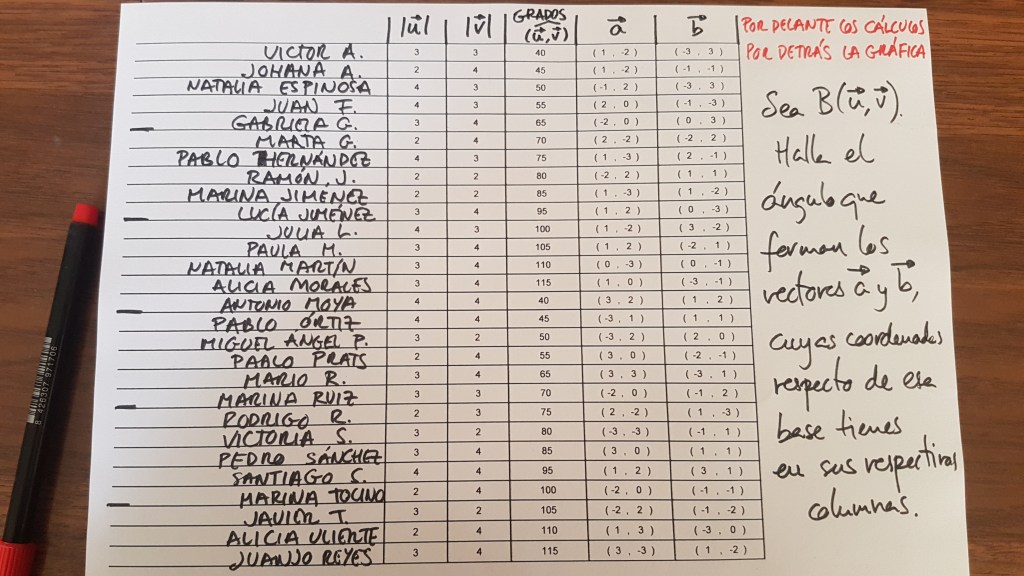 |u⃗| |v⃗| GRADOS (u⃗,v⃗) a⃗ b⃗
VICTOR A. 3 3 40 (1 , -2) (-3 , 3)
JOHANA A. 2 4 45 (1 , -2) (-1 , -1)
NATALIA ESPINOSA 4 3 50 (-1 , 2) (-3 , 3)
JUAN F. 4 3 55 (2 , 0) (-1 , -3)
GABRIELA G. 3 4 65 (-2 , 0) (0 , 3)
MARTA G. 2 4 70 (2 , -2) (-2 , 2)
PABLO HERNÁNDEZ 4 3 75 (1 , -3) (2 , -1)
RAMÓN J. 2 2 80 (-2 , 2) (1 , 1)
MARINA JIMÉNEZ 2 2 85 (1 , -3) (1 , -2)
LUCÍA JIMÉNEZ 3 4 95 (1 , 2) (0 , -3)
JULIA L. 4 3 100 (1 , -2) (3 , -2)
PAULA M. 3 4 105 (1 , 2) (-2 , 1)
NATALIA MARTÍN 3 4 110 (0 , -3) (0 , -1)
ALICIA MORALES 3 4 115 (1 , 0) (-3 , -1)
ANTONIO MOYA 4 4 40 (3 , 2) (1 , 2)
PABLO ÓRTIZ 4 4 45 (-3 , 1) (1 , 1)
MIGUEL ANGEL P. 3 2 50 (-3 , 2) (2 , 0)
PABLO PRATS 2 4 55 (3 , 0) (-2 , -1)
MARIO R. 3 4 65 (3 , 3) (-3 , 1)
MARINA RUIZ 3 3 70 (-2 , 0) (-1 , 2)
RODRIGO R. 2 3 75 (2 , -2) (1 , -3)
VICTORIA S. 3 2 80 (-3 , -3) (-1 , 1)
PEDRO SÁNCHEZ 3 4 85 (3 , 0) (1 , 1)
SANTIAGO S. 4 4 95 (1 , 2) (3 , 1)
MARINA TOCINO 2 4 100 (-2 , 0) (-1 , -1)
JAVIER T. 3 2 105 (-2 , 2) (-1 , -2)
ALICIA VLIENTE 2 4 110 (1 , 3) (-3 , 0)
JUANJO REYES 3 4 115 (3 , -3) (1 , -2)
POR DELANTE LOS CÁLCULOS
POR DETRÁS LA GRÁFICA
Sea B(u⃗,v⃗).
Halla el
ángulo que
forman los
vectores a⃗ y b⃗,
cuyas coordenadas
respecto de esa
base tienes
en sus respectivas
columnas.